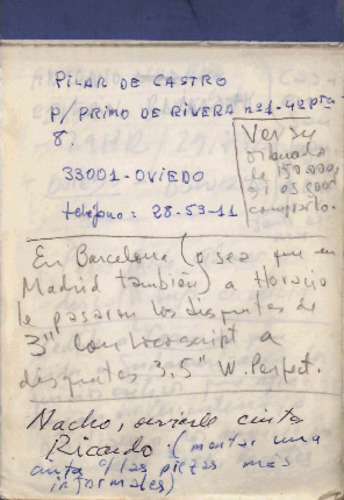 PILAR DE CASTRO
P/ PRIMO DE RIVERA nº1-4º pta
8.
33001-OVIEDO
teléfono: 28-53-11
Ver su
de 150.000,
En Barcelona (o sea que en
Madrid también) a Horacio
le pasaron los disquetes de
3" con Locoscript a
disquetes 3,5" W. Perfect.
Nacho, enviarle cinta
Ricardo (montar una
cinta c/ las piezas más
informales)